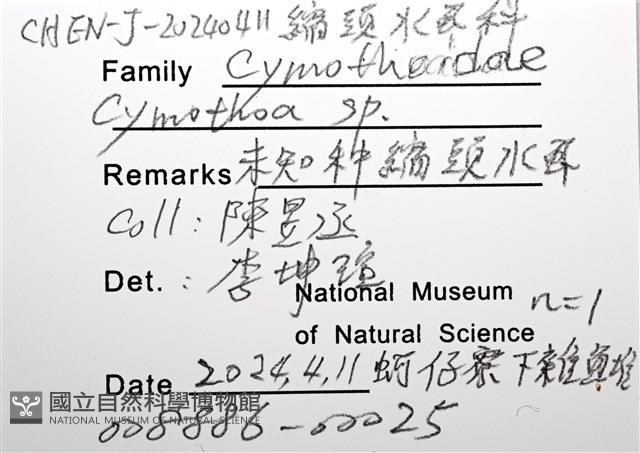 CHEN-J-20240411 縮頭水虱科
Family Cymothoidae
Cymothoa sp.
Remarks 未知种縮頭水虱
Coll: 陳昱丞
Det.: 李坤瑄
National Museum n=1
of Natural Science
Date 2024.4.11 蚵仔寮下雜魚堆
國立自然科學博物館
NATIONAL MUSEUM OF NATURAL SCIENCE
008886-00025